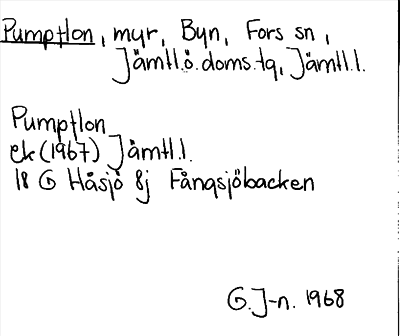 Pumpflon, myr, Byn, Fors sn,
Jämtl.ö.doms.tg, Jämtl.l.
Pumpflon
ek (1967) Jämtl.l.
18 G Håsjö 8j Fångsjöbacken
G.J-n. 1968